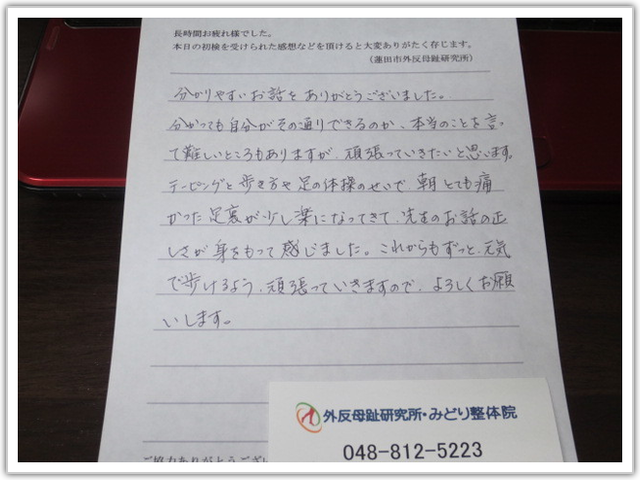 長時間お疲れ様でした。
本日の初検を受けられた感想などを頂けると大変ありがたく存じます。
(蓮田市外反母趾研究所)
分かりやすいお話をありがとうございました。
分かっても自分がその通りできるのか、本当のことを言っ
て難しいところもありますが、頑張っていきたいと思います。
テーピングと歩き方や足の体操のせいで、朝とても痛
かった足裏が少し楽になってきて、先生のお話の正
しさが身をもって感じました。これからもずっと、元気
で歩けるよう、頑張っていきますので、よろしくお願
いします。
外反母趾研究所・みどり整体院
048-812-5223
ご協力ありがとうござい